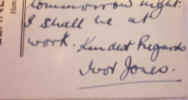 tomorrow night.
I shall be at
work. Kindest Regards
Ivor Jones.